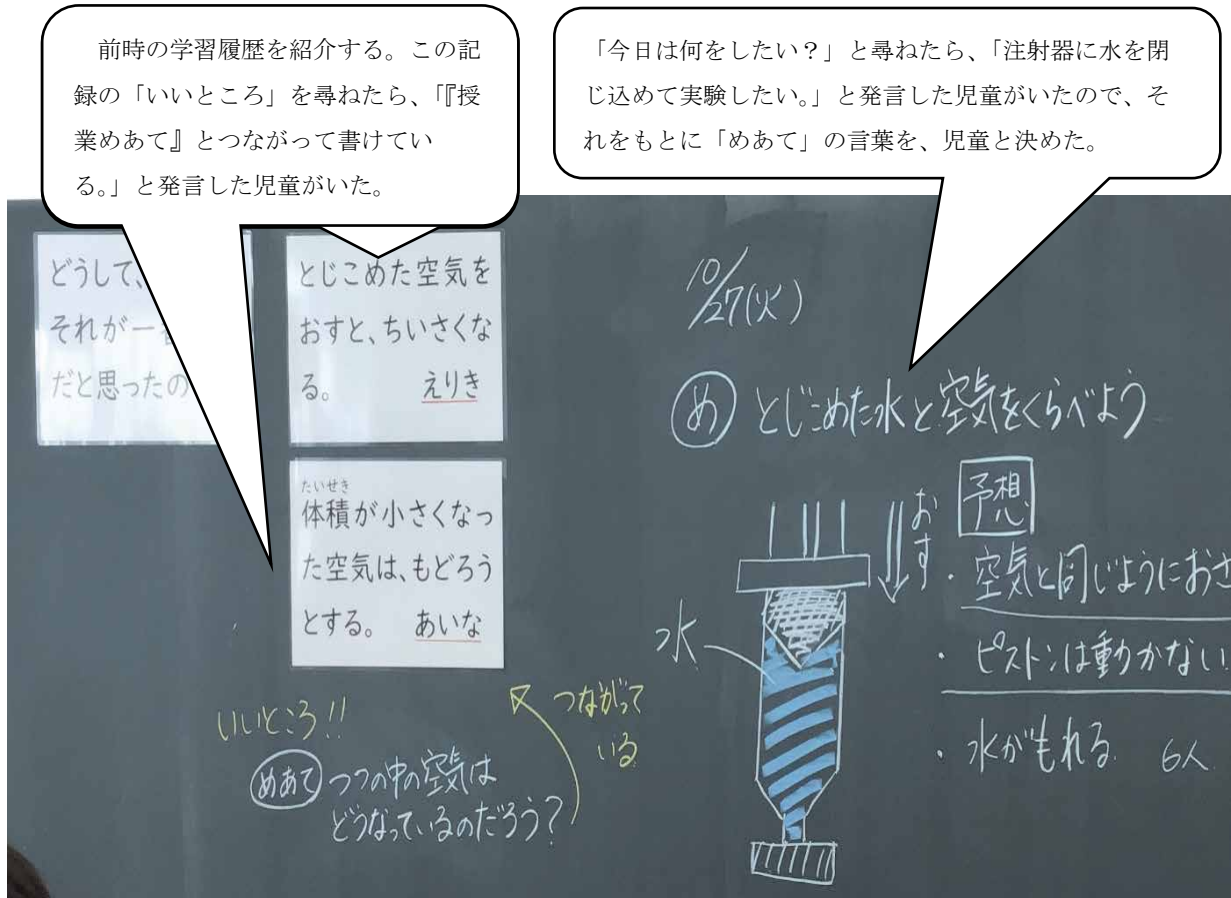 前時の学習履歴を紹介する。この記
録の「いいところ」を尋ねたら、「『授
業めあて』とつながって書けてい
る。」と発言した児童がいた。
「今日は何をしたい?」と尋ねたら、「注射器に水を閉
じ込めて実験したい。」と発言した児童がいたので、そ
れをもとに「めあて」の言葉を、児童と決めた。
どうして、
それが一
だと思ったの
とじこめた空気を
おすと、ちいさくな
る。 えりき
たいせき
体積が小さくなっ
た空気は、もどろう
とする。 あいな
いいところ!!
めあて つつの中の空気は
どうなっているのだろう?
つながって
いる
10/27(火)
め とじこめた水と空気をくらべよう
水
おす
予想
・空気と同じようにおさ
・ピストンは動かない
・水がもれる 6人